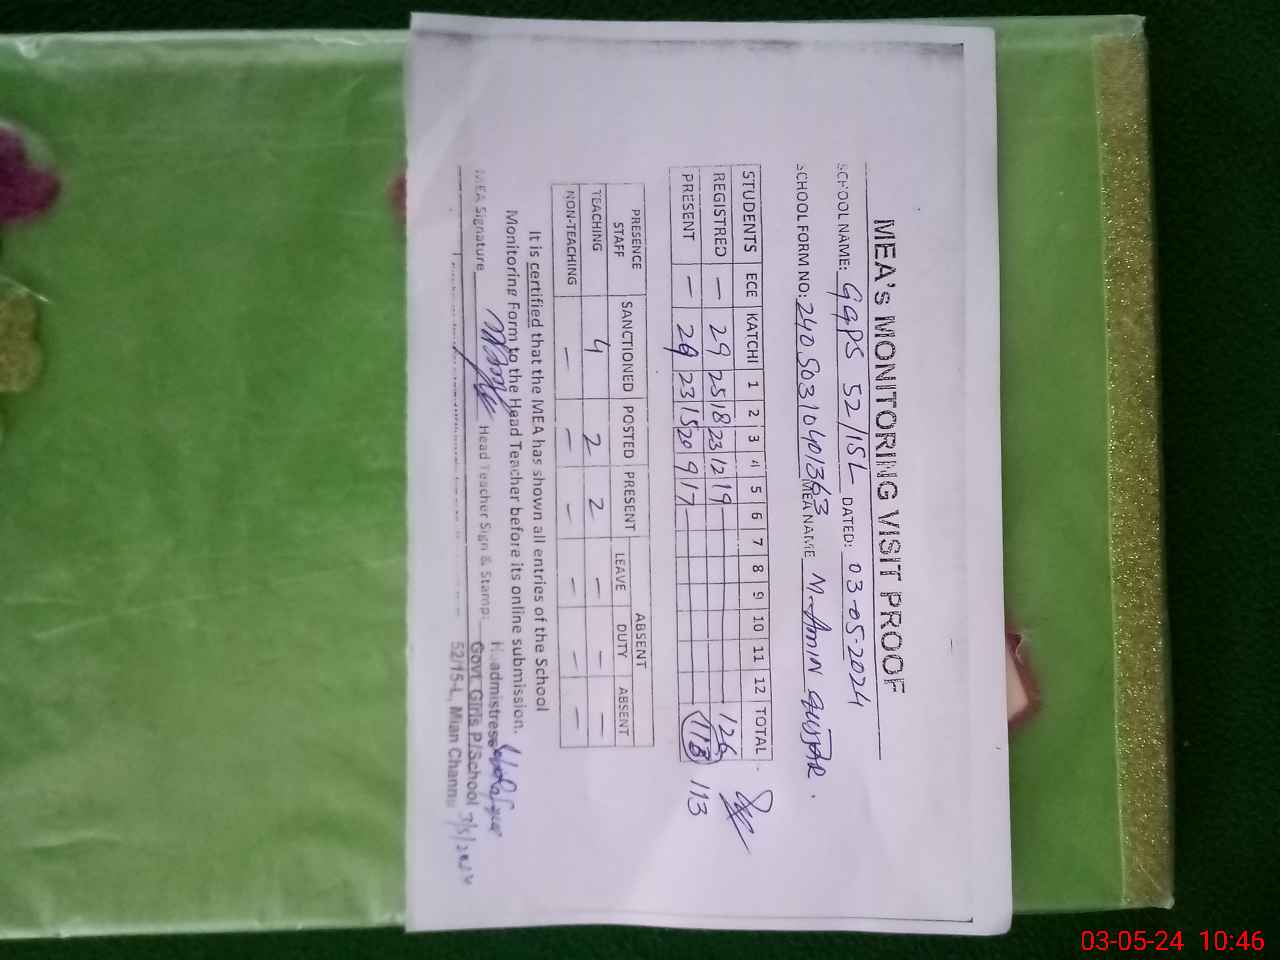 MEA's MONITORING VISIT PROOF
SCHOOL NAME: GGPS 52/15L DATED: 03-05-2024
SCHOOL FORM NO: 24050310401363 MEA NAME M. Amin
STUDENTS ECE KATCHI 1 2 3 4 5 6 7 8 9 10 11 12 TOTAL
REGISTRED — 29 25 18 23 12 19 126
PRESENT — 29 23 15 20 9 17 113 113
PRESENCE STAFF SANCTIONED POSTED PRESENT ABSENT
LEAVE DUTY ABSENT
TEACHING 4 2 2 — — —
NON-TEACHING — — — — — —
It is certified that the MEA has shown all entries of the School
Monitoring Form to the Head Teacher before its online submission.
MEA Signature Head Teacher Sign & Stamp:
Headmistress
Govt. Girls P/School
52/15-L, Mian Channu
3/5/2024
03-05-24 10:46